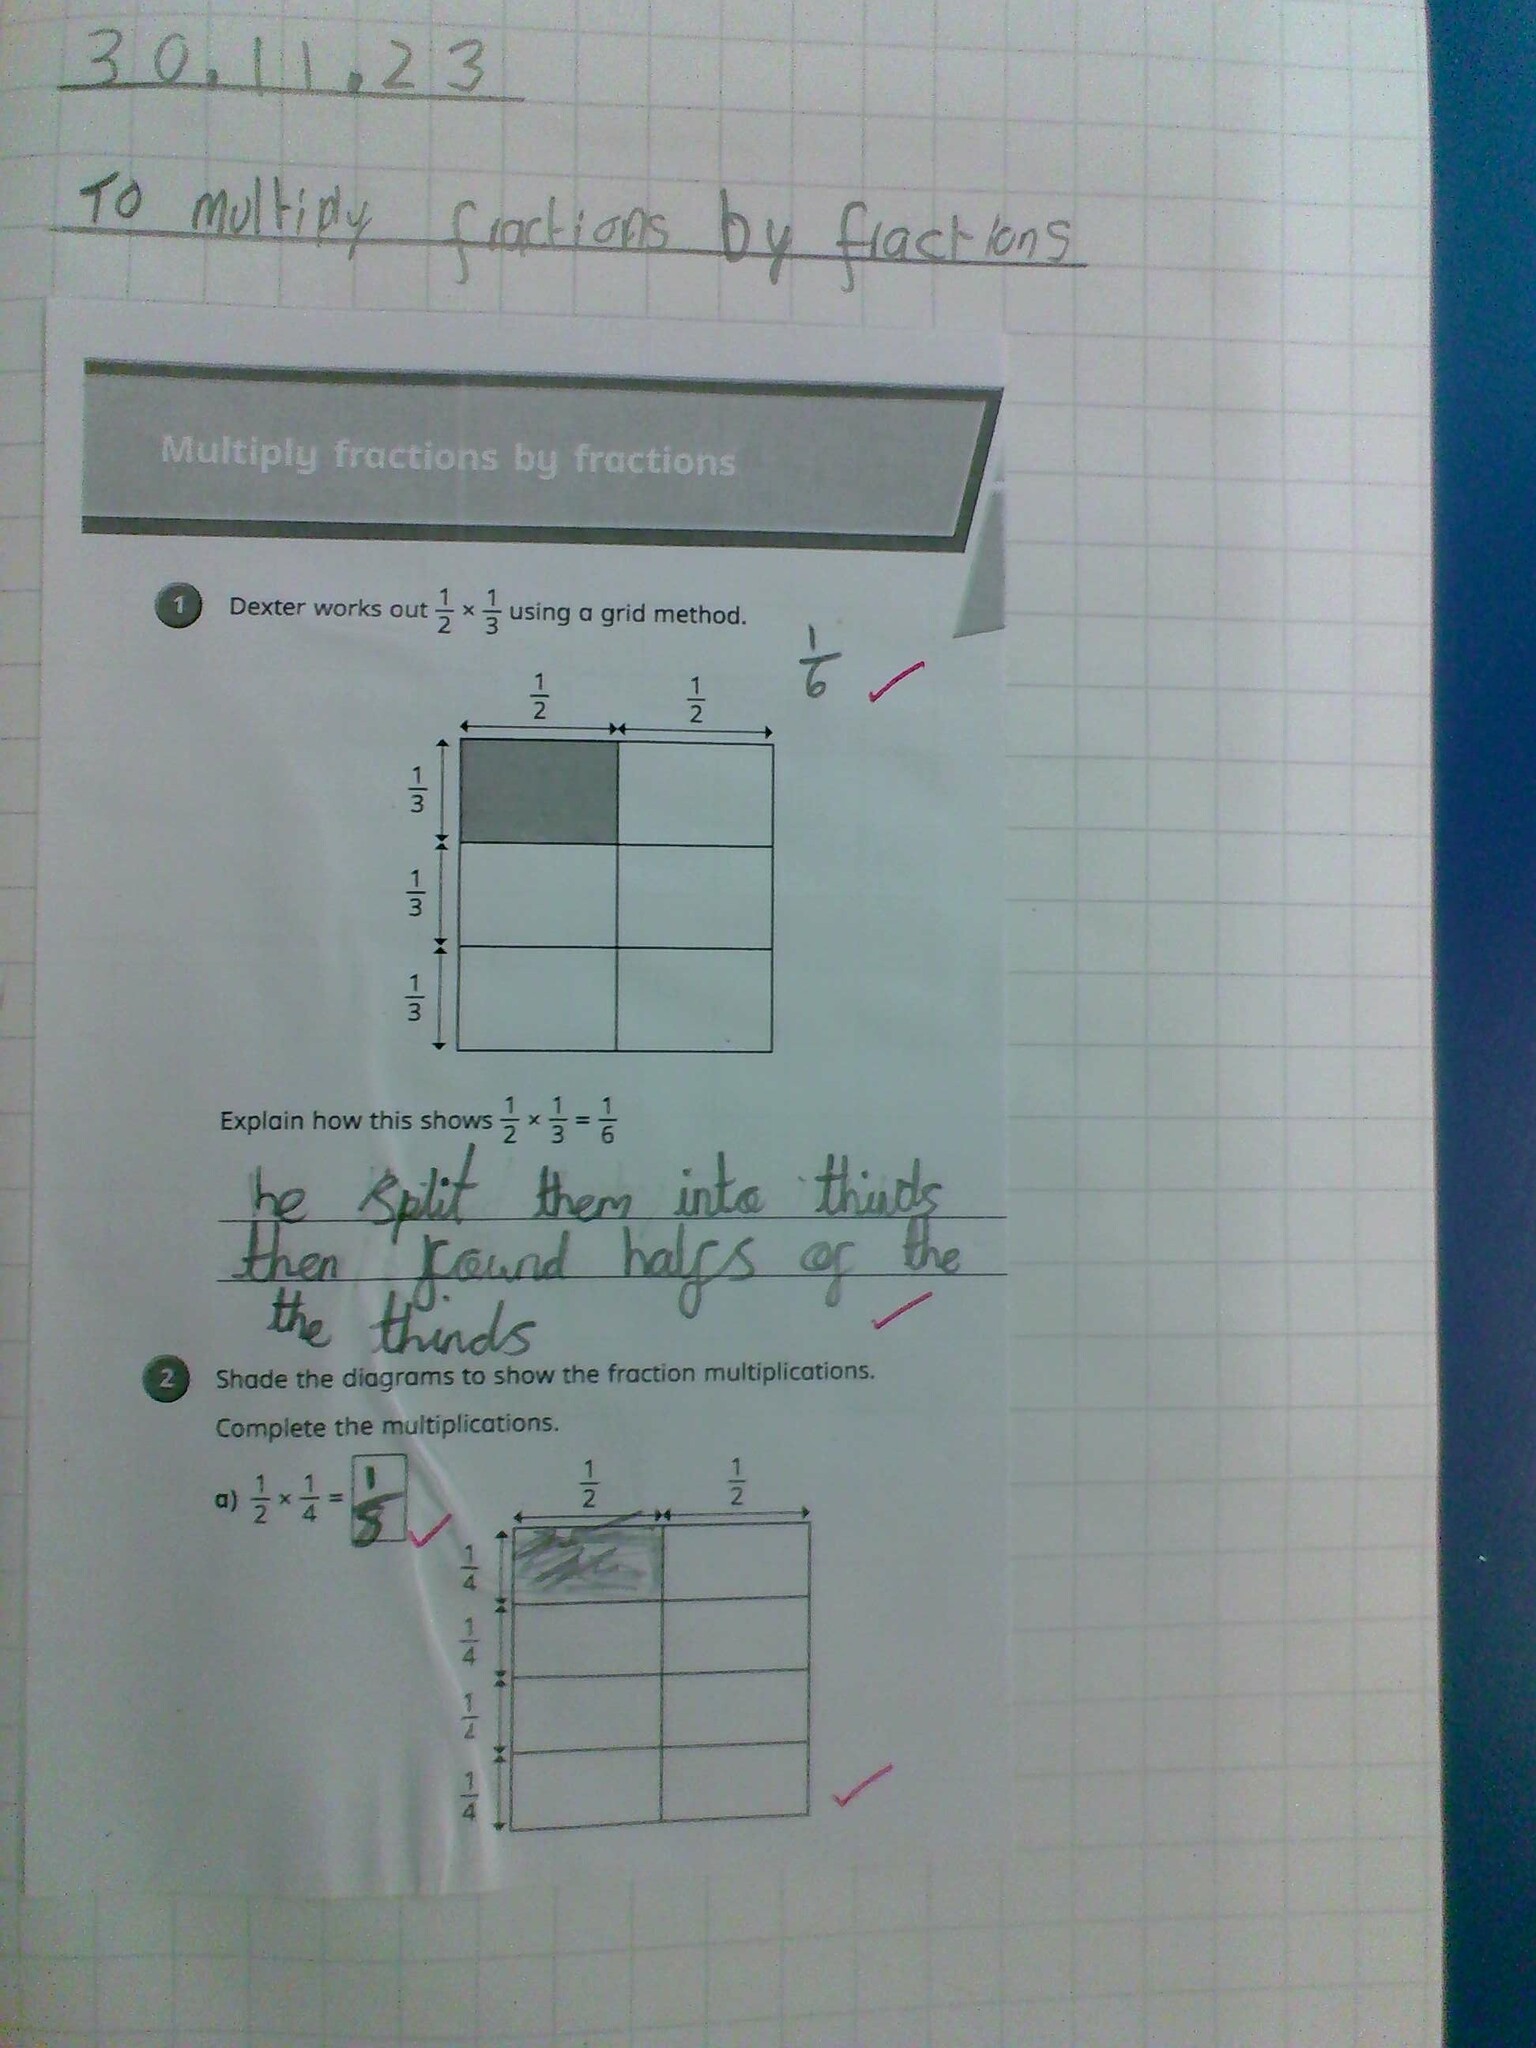 30.11.23
To multiply fractions by fractions
Multiply fractions by fractions
1 Dexter works out 1/2 × 1/3 using a grid method.
1/6
1/2 1/2
1/3
1/3
1/3
Explain how this shows 1/2 × 1/3 = 1/6
he split them into thirds
then found halfs of the
the thirds
2 Shade the diagrams to show the fraction multiplications.
Complete the multiplications.
a) 1/2 × 1/4 = 1/8
1/2 1/2
1/4
1/4
1/4
1/4